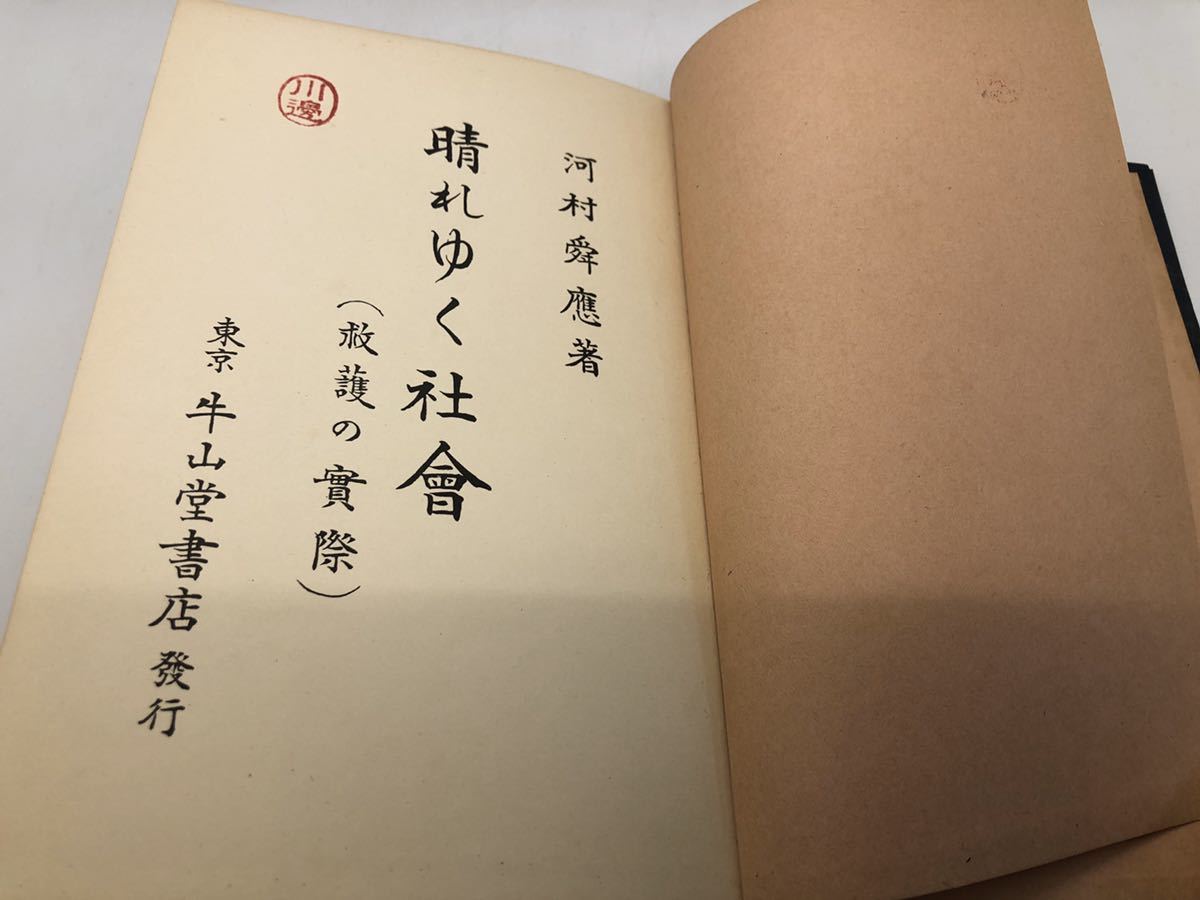 河村舜應著
晴れゆく社會
(救護の實際)
東京 牛山堂書店 發行
川邊